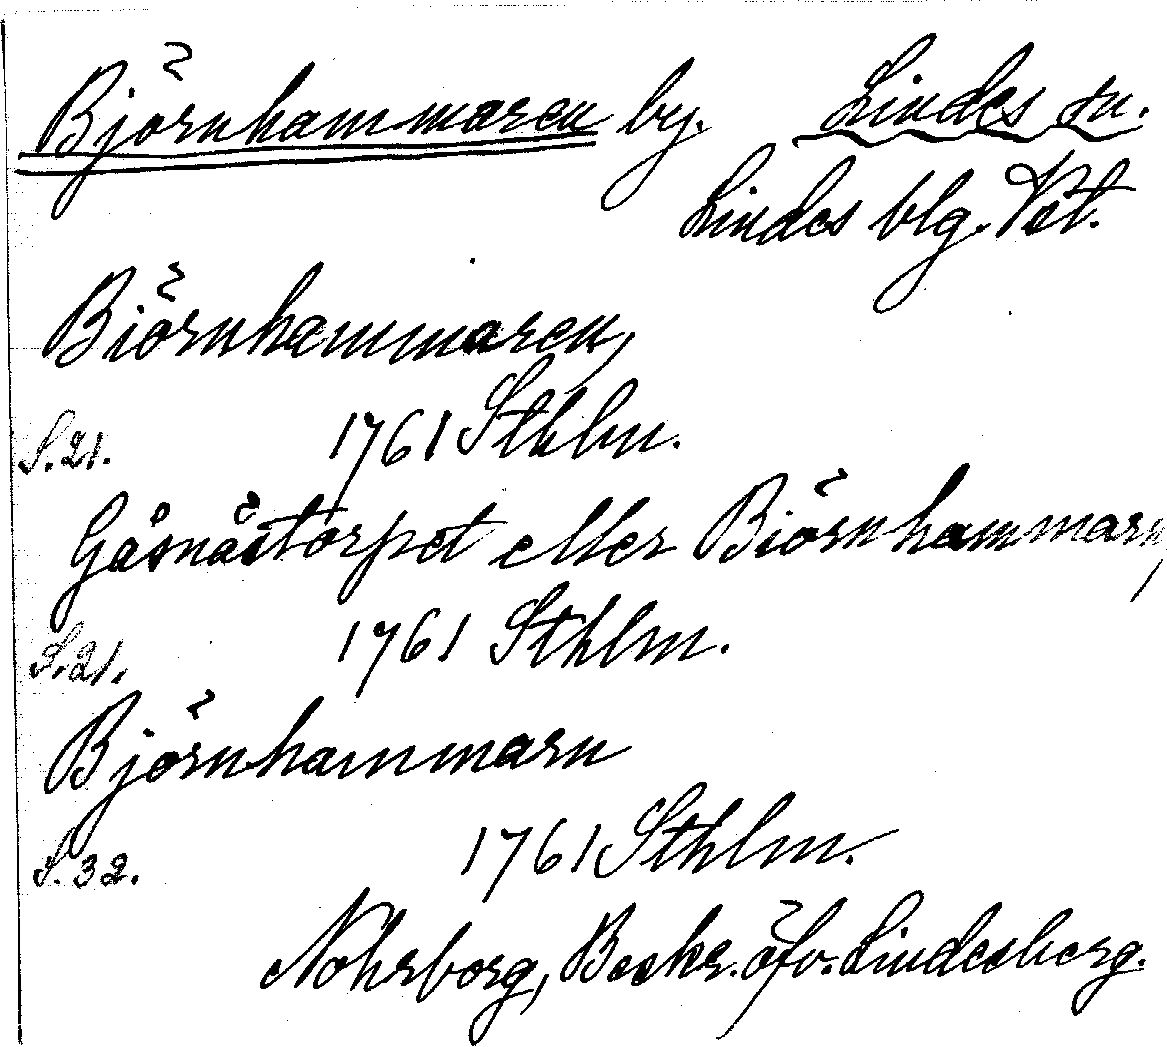 Björnhammaren by. Lindes sn.
Lindes blg. Vstl.
Biörnhammaren,
S. 21. 1761 Sthlm.
Gåsnästorpet eller Biörnhammarn,
S. 21. 1761 Sthlm.
Björnhammarn
S. 32. 1761 Sthlm.
Nohrborg, Beskr. öfv. Lindesberg.